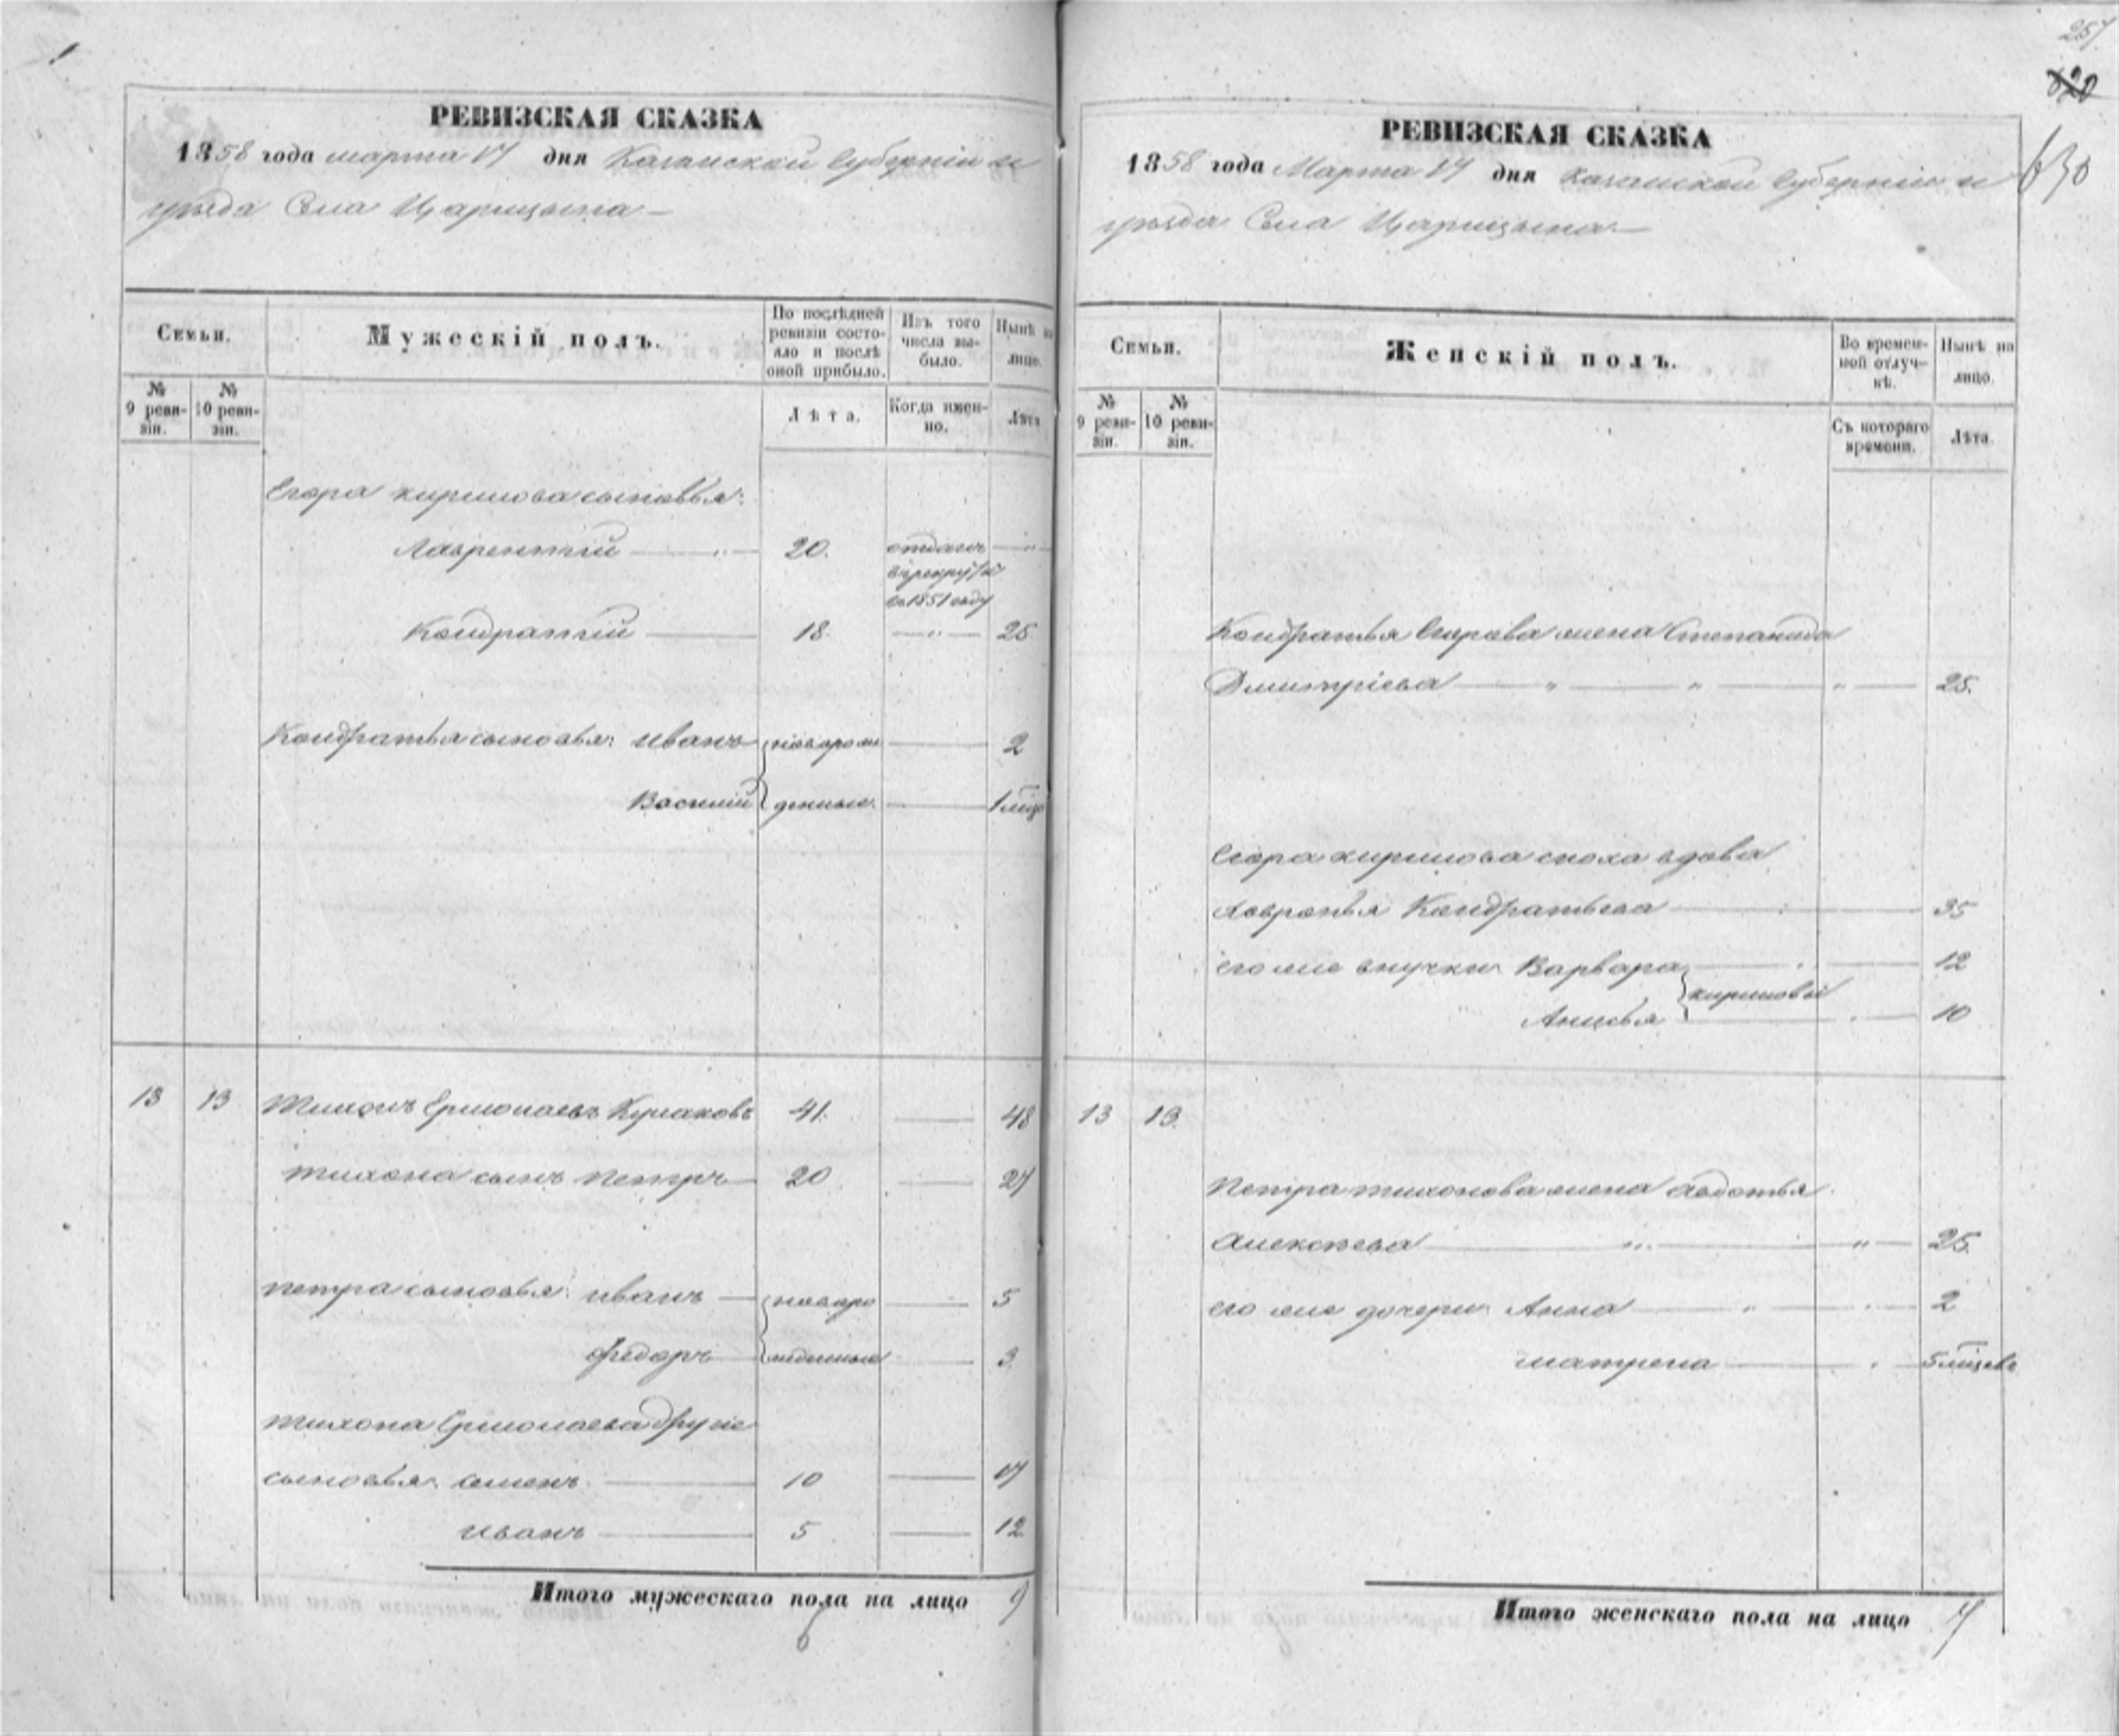 1
РЕВИЗСКАЯ СКАЗКА
1858 года марта 17 дня Казанской Губерніи и
уѣзда Села Царицына
Семьи.
Мужескій полъ.
По послѣдней ревизіи состояло и послѣ оной прибыло.
Изъ того числа выбыло.
Нынѣ на лицо.
№ 9 ревизіи.
№ 10 ревизіи.
Лѣта.
Когда именно.
Лѣта
Егора Кирилова сыновья:
Лаврентій 20. отданъ
въ рекруты
въ 1851 году
Кондратій 18. 25.
Кондратья сыновья: Иванъ новорож 2
Василій денные. 1 мѣс
13 13 Тихонъ Ермолаевъ Кулаковъ 41. 48
Тихона сынъ Петръ 20 27
Петра сыновья: Иванъ новоро 5
Федоръ жденные 3.
Тихона Ермолаева другіе
сыновья: Семенъ 10 17
Иванъ 5 12
Итого мужескаго пола на лицо 9
6
257
620
630
РЕВИЗСКАЯ СКАЗКА
1858 года Марта 17 дня Казанской Губерніи и
уѣзда Села Царицына
Семьи.
Женскій полъ.
Во временной отлучкѣ.
Нынѣ на лицо.
№ 9 ревизіи.
№ 10 ревизіи.
Съ котораго времени.
Лѣта.
Кондратья Егорова жена Степанида
Дмитріева 25.
Егора Кирилова сноха вдова
Кондратьева 35
его же внучки Варвара 12
Кириловы
Анисья 10
13 13.
Петра Тихонова жена Авдотья
Алексѣева 25.
его же дочери Анна 2
Матрена 5 мѣсяцевъ
Итого женскаго пола на лицо 7